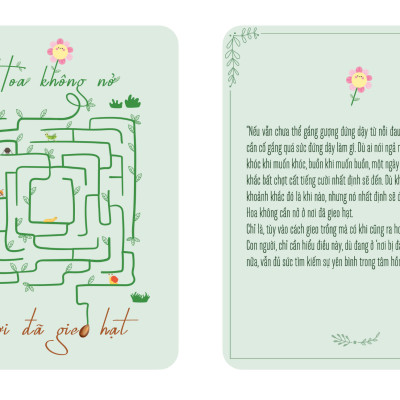 Hoa không nở
đã gieo hạt
"Nếu vẫn chưa thể gắng gượng đứng dậy từ nỗi đau
cần cố gắng quá sức đứng dậy làm gì. Dù ai nói ngả n
khóc khi muốn khóc, buồn khi muốn buồn, một ngày
khắc bất chợt cất tiếng cười nhất định sẽ đến. Dù kh
khoảnh khắc đó là khi nào, nhưng nó nhất định sẽ đ
Hoa không cần nở ở nơi đã gieo hạt.
Chỉ là, tùy vào cách gieo trồng mà có khi cũng ra ho
Con người, chỉ cần hiểu điều này, dù đang ở 'nơi bị đ
nữa, vẫn đủ sức tìm kiếm sự yên bình trong tâm hồ